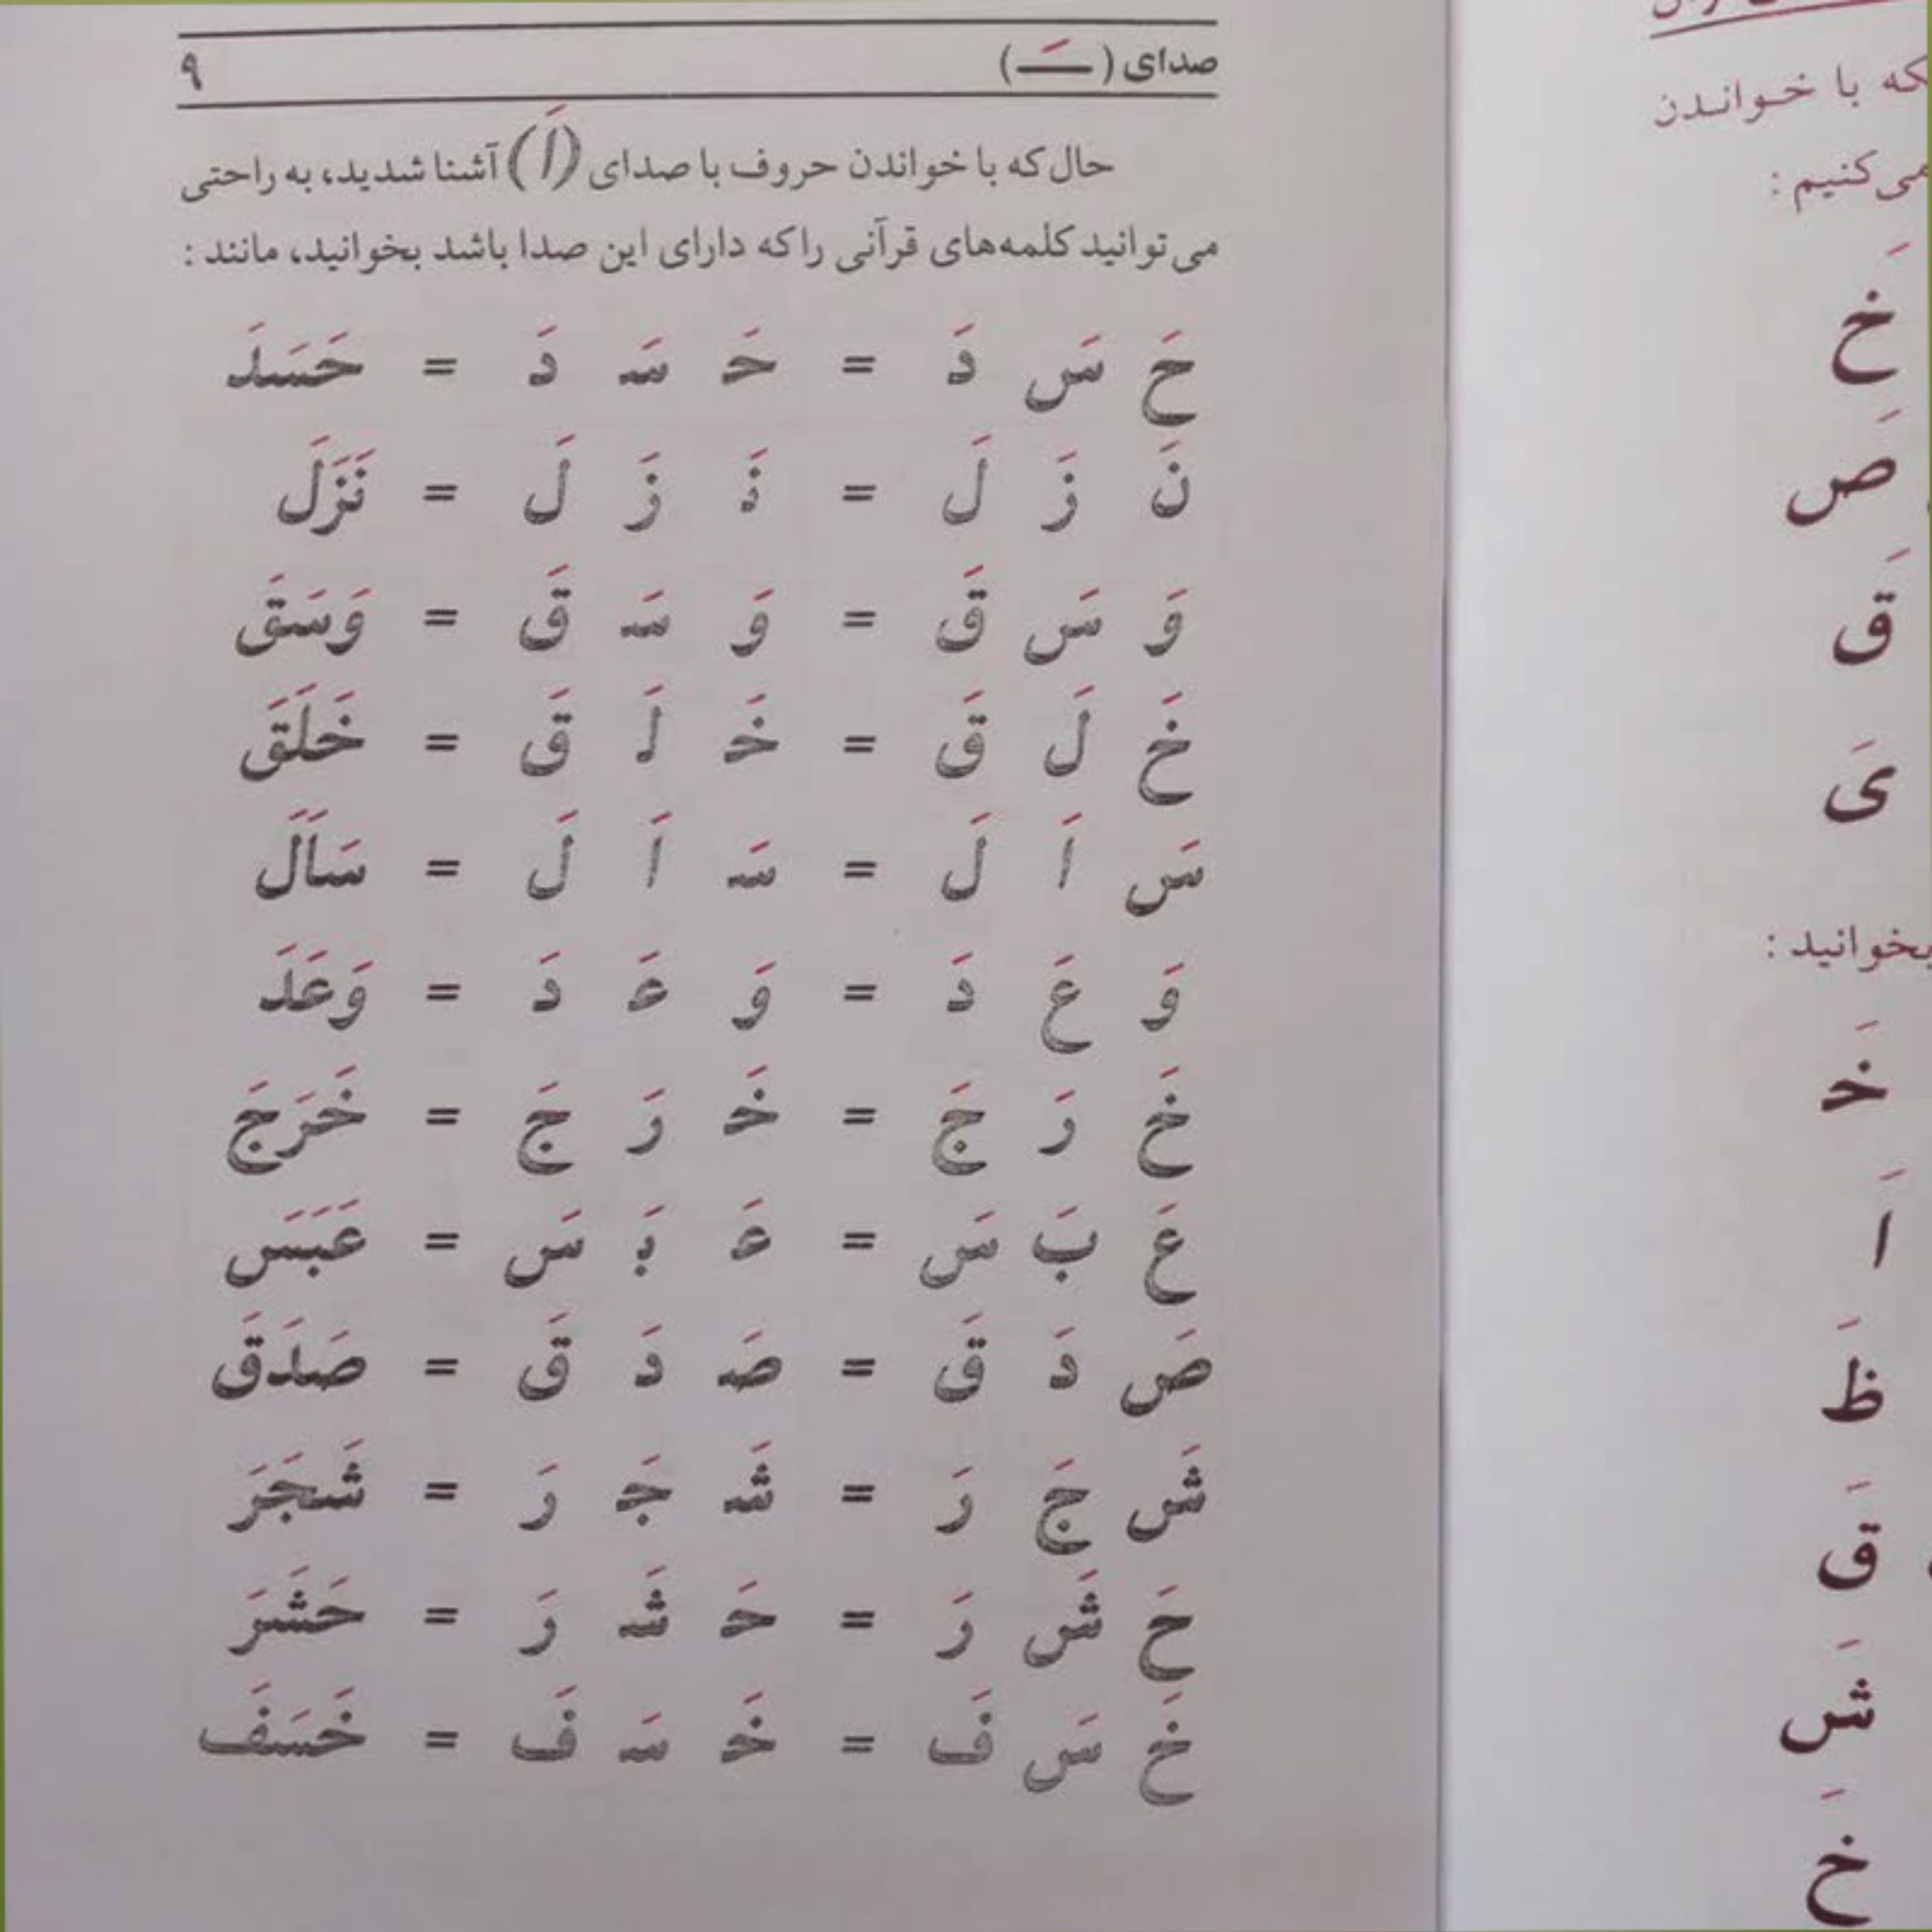 صدای (ـَـ) ۹
حال که با خواندن حروف با صدای (اَ) آشنا شدید، به راحتی
می‌توانید کلمه‌های قرآنی را که دارای این صدا باشد بخوانید، مانند :
حَ سَ دَ = حَـ سَـ دَ = حَسَدَ
نَ زَ لَ = نَـ زَ لَ = نَزَلَ
وَ سَ قَ = وَ سَـ قَ = وَسَقَ
خَ لَ قَ = خَـ لَـ قَ = خَلَقَ
سَ اَ لَ = سَـ اَ لَ = سَاَلَ
وَ عَ دَ = وَ عَـ دَ = وَعَدَ
خَ رَ جَ = خَـ رَ جَ = خَرَجَ
عَ بَ سَ = عَـ بَـ سَ = عَبَسَ
صَ دَ قَ = صَـ دَ قَ = صَدَقَ
شَ جَ رَ = شَـ جَـ رَ = شَجَرَ
حَ شَ رَ = حَـ شَـ رَ = حَشَرَ
خَ سَ فَ = خَـ سَـ فَ = خَسَفَ
که با خواندن
می‌کنیم :
خَ
صَ
قَ
یَ
بخوانید :
خَـ
اَ
ظَ
قَ
شَ
خَ